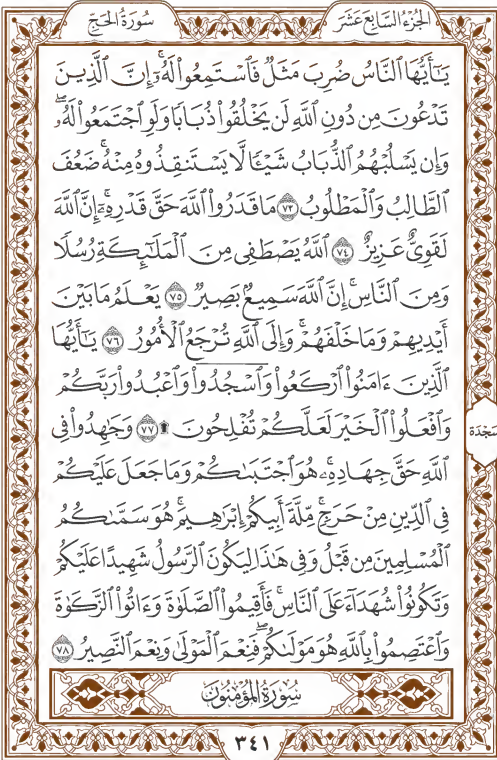 الجزء السابع عشر
سورة الحج
يَـٰٓأَيُّهَا ٱلنَّاسُ ضُرِبَ مَثَلٌ فَٱسْتَمِعُوا۟ لَهُۥٓ ۚ إِنَّ ٱلَّذِينَ
تَدْعُونَ مِن دُونِ ٱللَّهِ لَن يَخْلُقُوا۟ ذُبَابًا وَلَوِ ٱجْتَمَعُوا۟ لَهُۥ ۖ
وَإِن يَسْلُبْهُمُ ٱلذُّبَابُ شَيْـًٔا لَّا يَسْتَنقِذُوهُ مِنْهُ ۚ ضَعُفَ
ٱلطَّالِبُ وَٱلْمَطْلُوبُ ٧٣ مَا قَدَرُوا۟ ٱللَّهَ حَقَّ قَدْرِهِۦٓ ۗ إِنَّ ٱللَّهَ
لَقَوِىٌّ عَزِيزٌ ٧٤ ٱللَّهُ يَصْطَفِى مِنَ ٱلْمَلَـٰٓئِكَةِ رُسُلًا
وَمِنَ ٱلنَّاسِ ۚ إِنَّ ٱللَّهَ سَمِيعٌۢ بَصِيرٌ ٧٥ يَعْلَمُ مَا بَيْنَ
أَيْدِيهِمْ وَمَا خَلْفَهُمْ ۗ وَإِلَى ٱللَّهِ تُرْجَعُ ٱلْأُمُورُ ٧٦ يَـٰٓأَيُّهَا
ٱلَّذِينَ ءَامَنُوا۟ ٱرْكَعُوا۟ وَٱسْجُدُوا۟ وَٱعْبُدُوا۟ رَبَّكُمْ
وَٱفْعَلُوا۟ ٱلْخَيْرَ لَعَلَّكُمْ تُفْلِحُونَ ۩ ٧٧ وَجَـٰهِدُوا۟ فِى
سجدة
ٱللَّهِ حَقَّ جِهَادِهِۦ ۚ هُوَ ٱجْتَبَىٰكُمْ وَمَا جَعَلَ عَلَيْكُمْ
فِى ٱلدِّينِ مِنْ حَرَجٍ ۚ مِّلَّةَ أَبِيكُمْ إِبْرَٰهِيمَ ۚ هُوَ سَمَّىٰكُمُ
ٱلْمُسْلِمِينَ مِن قَبْلُ وَفِى هَـٰذَا لِيَكُونَ ٱلرَّسُولُ شَهِيدًا عَلَيْكُمْ
وَتَكُونُوا۟ شُهَدَآءَ عَلَى ٱلنَّاسِ ۚ فَأَقِيمُوا۟ ٱلصَّلَوٰةَ وَءَاتُوا۟ ٱلزَّكَوٰةَ
وَٱعْتَصِمُوا۟ بِٱللَّهِ هُوَ مَوْلَىٰكُمْ ۖ فَنِعْمَ ٱلْمَوْلَىٰ وَنِعْمَ ٱلنَّصِيرُ ٧٨
سورة المؤمنون
٣٤١